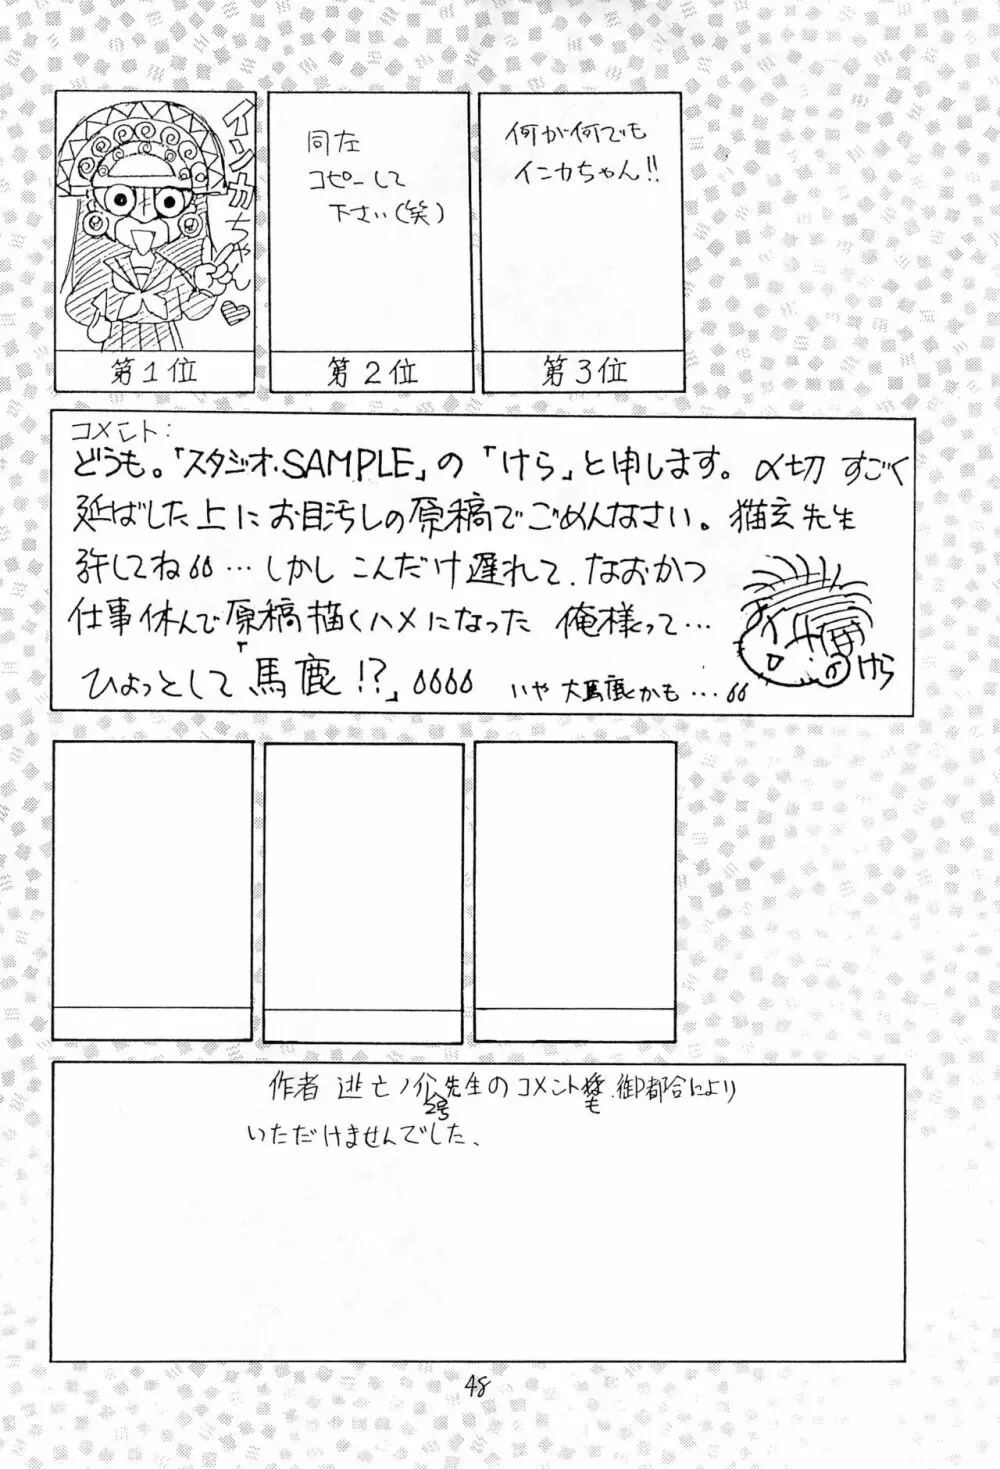 インカちゃん♡
第1位
同左
コピーして
下さい(笑)
第2位
何が何でも
インカちゃん!!
第3位
コメント:
どうも。「スタジオ・SAMPLE」の「けら」と申します。〆切 すごく
延ばした上にお目汚しの原稿でごめんなさい。猫玄先生
許してね… しかし こんだけ遅れて、なおかつ
仕事休んで原稿描くハメになった 俺様って…
ひょっとして「馬鹿!?」
いや 大馬鹿かも…
けら
作者 逃亡ノ介2号先生のコメントも、御都合により
いただけませんでした、
48